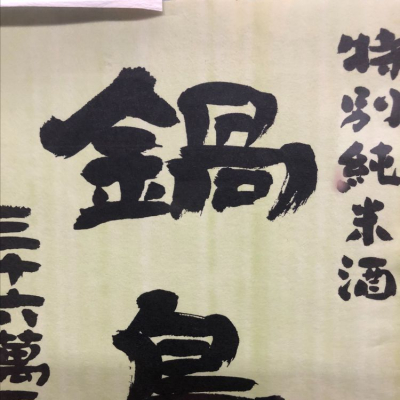 特別純米酒
鍋島
三十六萬